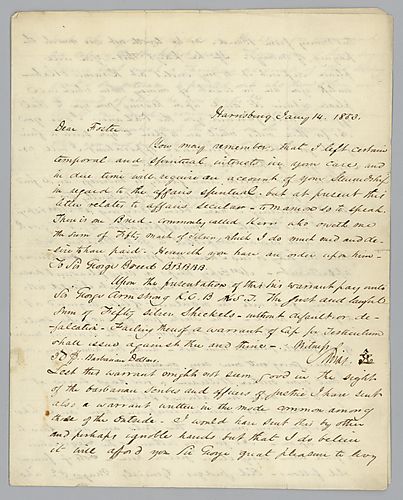 Harrisburg Jany 14. 1853.
Dear Foster
You may remember that I left certain
temporal and spiritual interests in your care, and
in due time will require an account of your Stewardship
in regard to the affairs spiritual - but at present this
letter relates to affairs secular - to mamon so to speak.
There is one Burd - commonly called Kerr who oweth me
the sum of Fifty, which I do much need and de-
sire to have paid - Herewith you have an order upon him -
To Sir George Bart
Upon the presentation of this his warrant pay unto
Sir George Armstrong K.C.B. The just and lawful
Sum of Fifty silver Sheckels - without or de-
falcation - Failing thereof a warrant of Cap for
shall issue against thee and thine - Witness
Barbarian Dollars.
Lest this warrant might not seem good in the sight
of the barbarian scribes and officers of justice I have sent
also a warrant written in the mode common among
those of the outside. I would have sent this by other
and perhaps ignoble hands but that I do believe
it will afford you Sir George great pleasure to